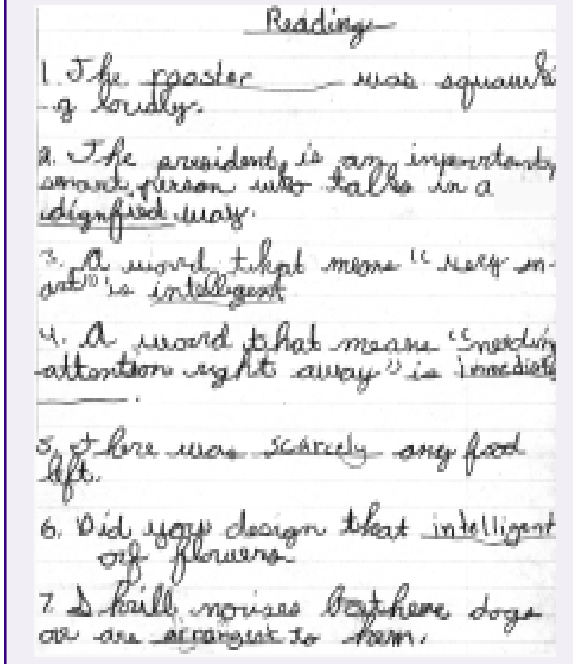 Reading
1. The rooster was squawki
-g loudly.
2. The president is an important,
smart person who talks in a
dignfied way.
3. A word that means "very sm-
art" is intelligent
4. A word that means "needing
attention right away" is immediate
.
5. There was scarcely any food
left.
6. Did you design that intelligent
of flowers
7. Shrill noises dogs
or are to them.